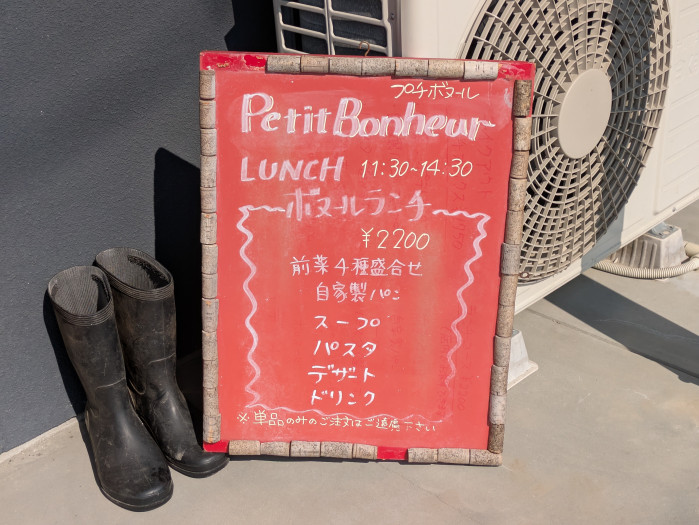 プチボヌール
Petit Bonheur
LUNCH 11:30~14:30
ボヌールランチ
¥2200
前菜4種盛合せ
自家製パン
スープ
パスタ
デザート
ドリンク
※単品のみのご注文はご遠慮下さい